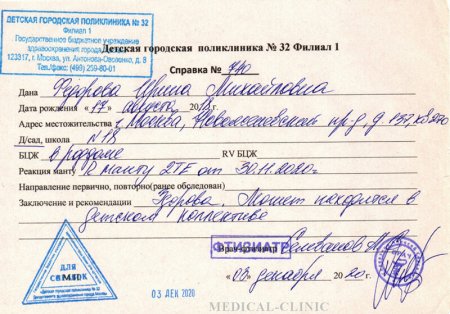 ДЕТСКАЯ ГОРОДСКАЯ ПОЛИКЛИНИКА № 32
Филиал 1
Государственное бюджетное учреждение
здравоохранения города
123317, г. Москва, ул. Антонова-Овсеенко, д. 8
Тел./факс: (499) 259-80-01
Детская городская поликлиника № 32 Филиал 1
Справка № 740
Дана Федорова Ирина Михайловна
Дата рождения «17» августа
Адрес местожительства г. Москва, д 137, кв 270
Д/сад, школа N 18
БЦЖ в роддоме RV БЦЖ
Реакция манту R манту 2ТЕ от 30.11.2020г
Направление первично, повторно(ранее обследован)
Заключение и рекомендации Здорова. Может находится в
детском коллективе
ФТИЗИАТР
Врач-фтизиатр Селиванов
«03» декабря 2020г.
ДЛЯ
СПРАВОК
Детская городская поликлиника № 32
Департамента здравоохранения города Москвы
03 ДЕК 2020
MEDICAL-CLINIC